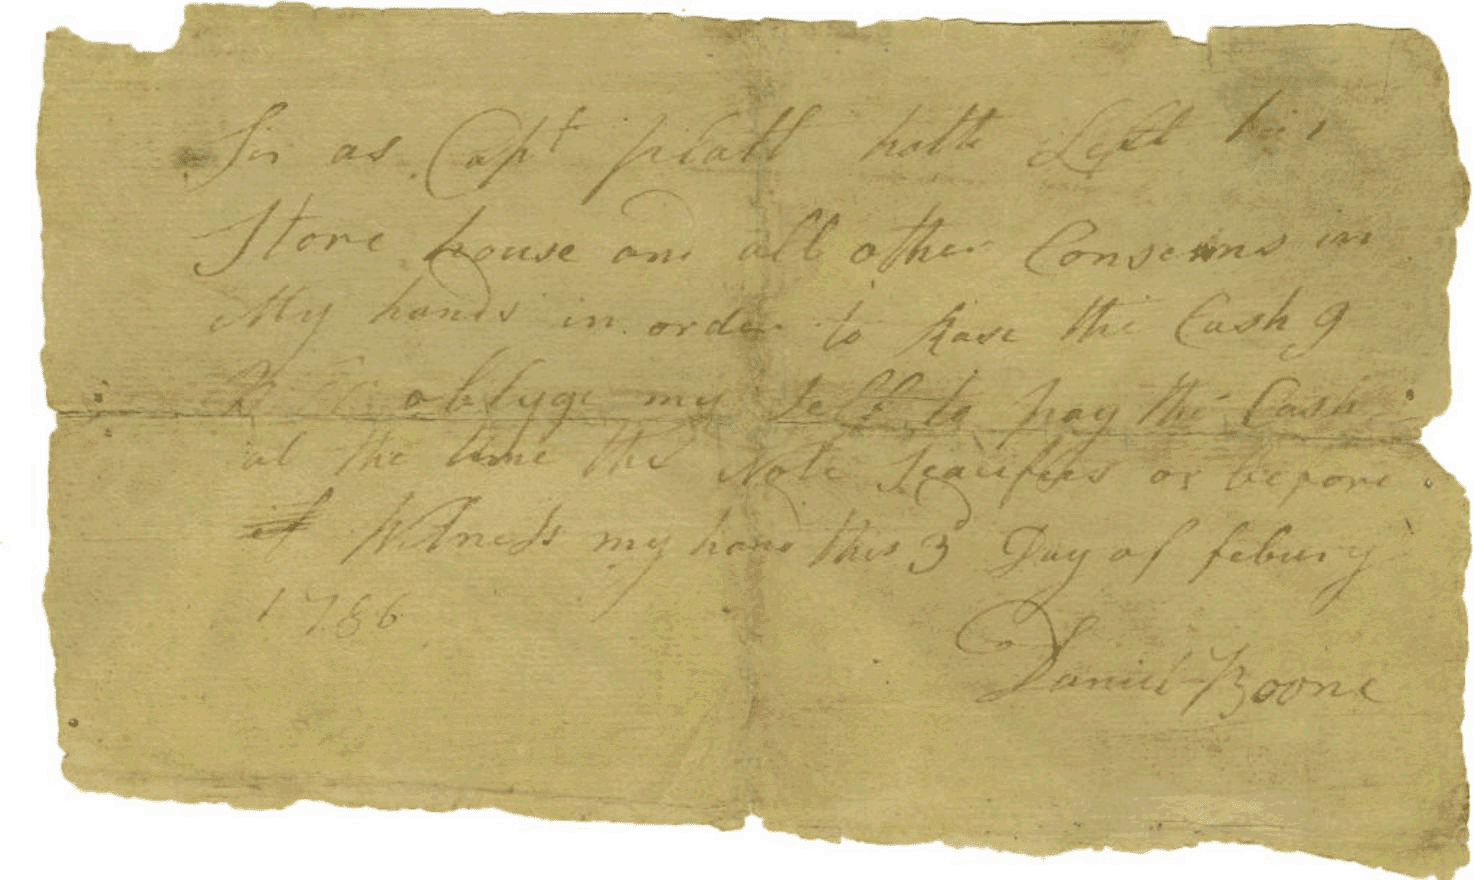 Sir as Capt platt hath Left his
Store house and all other Conserns in
My hands in order to Rase the Cash
oblyge my self to pay the Cash
at the time the Note or before
it Witness my hand this 3 Day of febury
1786
Daniel Boone